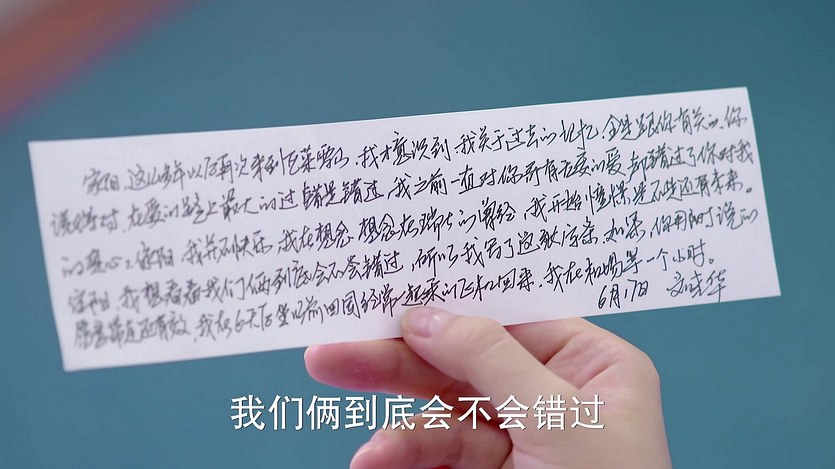 家阳,这么多年以后再次来到巴莱雪山,我才意识到,我关于过去的记忆,全是跟你有关的。你
说的对,在爱的路上最大的过错是错过,我之前一直对你所有在爱的爱,却错过了你对我
的真心。家阳,我并不快乐,我在想念,想念在瑞士的曾经,我开始憧憬是不是还有未来。
家阳,我想看看我们俩到底会不会错过,所以我写了这张字条,如果,你那时说的
愿景等还有效,我在6天后坐以前回国经常一起来的飞机回来,我在机场等一个小时。
6月17日 文晓华
我们俩到底会不会错过